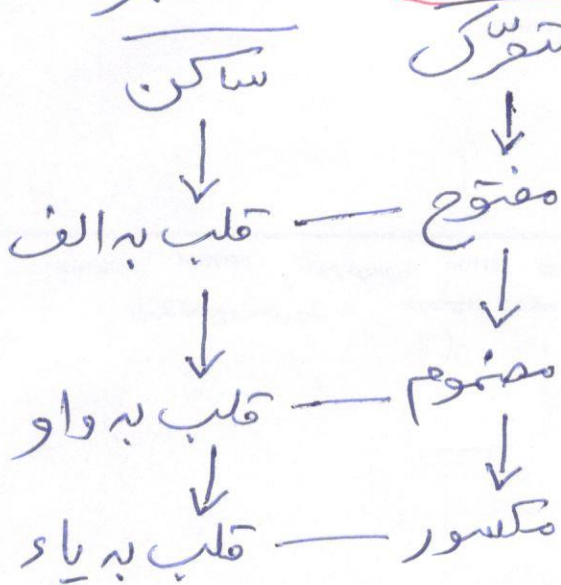 متحرّک ساکن
مفتوح قلب به الف
مضموم قلب به واو
مکسور قلب به یاء